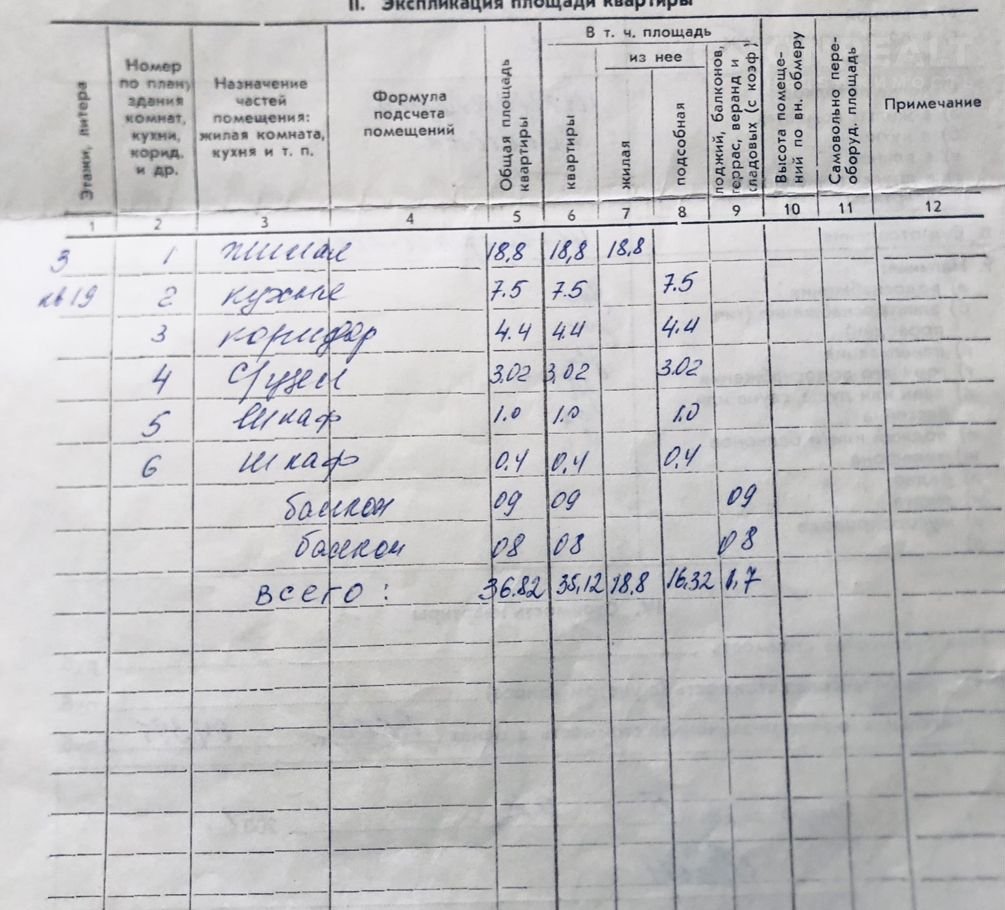 II. Экспликация площади квартиры
Этажи, литера
Номер по плану здания комнат, кухни, корид. и др.
Назначение частей помещения: жилая комната, кухня и т. п.
Формула подсчета помещений
Общая площадь квартиры
В т. ч. площадь
квартиры
из нее
жилая
подсобная
лоджий, балконов, террас, веранд и кладовых (с коэф.)
Высота помещений по вн. обмеру
Самовольно переоборуд. площадь
Примечание
1 2 3 4 5 6 7 8 9 10 11 12
3 1 жилая 18,8 18,8 18,8
кв 19 2 кухня 7.5 7.5 7.5
3 коридор 4.4 4.4 4.4
4 с/узел 3.02 3,02 3.02
5 шкаф 1.0 1.0 1.0
6 шкаф 0.4 0,4 0,4
балкон 09 09 09
балкон 08 08 08
всего : 36.82 35,12 18,8 16.32 1,7